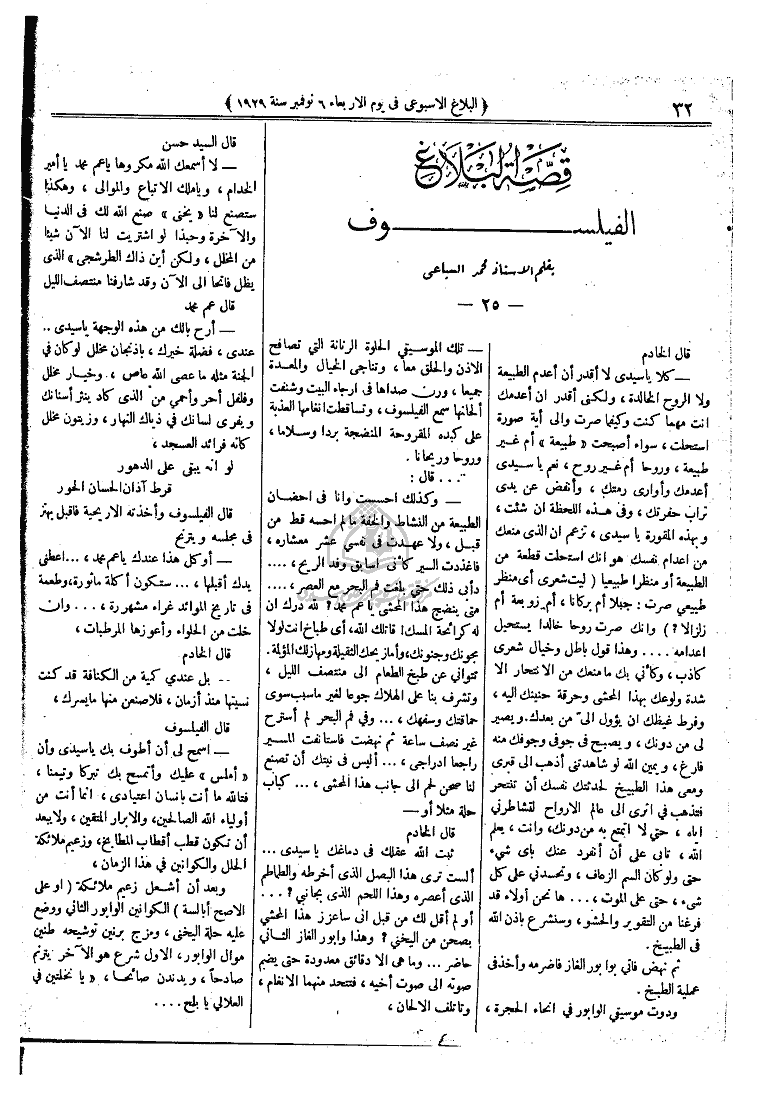 ٣٢
﴿ البلاغ الاسبوعى فى يوم الاربعاء ٦ نوفمبر سنة ١٩٢٩ ﴾
قصة البلاغ
الفيلسوف
بقلم الاستاذ محمد السباعى
— ٢٥ —
قال الخادم
— كلا ياسيدى لا أقدر أن أعدم الطبيعة
ولا الروح الخالدة ، ولكنى أقدر ان أعدمك
انت مهما كنت وكيفما صرت والى أية صورة
استحلت ، سواء أصبحت « طبيعة » أم غير
طبيعة ، وروحا أم غير روح ، نعم ياسيدى
أعدمك وأوارى رمتك ، وأنفض عن يدى
تراب حفرتك ، وفى هذه اللحظة ان شئت ،
وبهذه المقورة ياسيدى ، تزعم ان الذى منعك
من اعدام نفسك هو انك استحلت قطعة من
الطبيعة أو منظرا طبيعيا ( ليت شعرى أى منظر
طبيعي صرت : جبلا أم بركانا ، أم زوبعة أم
زلزالا ? ) وانك صرت روحا خالدا يستحيل
اعدامه .... وهذا قول باطل وخيال شعرى
كاذب ، وكأنى بك ما منعك من الانتحار الا
شدة ولوعك بهذا المحشى وحرقة حنينك اليه ،
وفرط غيظك ان يؤول الى من بعدك ويصير
لى من دونك ، و يصبح فى جوفى وجوفك منه
فارغ ، ويمين الله لو شاهدتنى أذهب الى قبرى
ومعى هذا الطبيخ لحدثتك نفسك أن تنتحر
فتذهب فى اثرى الى عالم الارواح لتشاطرني
اياه ، حتي لا اتمتع به من دونك ، وانت ، يعلم
الله ، تابى على أن أنفرد عنك باى شيء
حتى ولو كان السم الزعاف ، وتحسدني على كل
شىء ، حتى على الموت ، ... ها نحن أولاء قد
فرغنا من التقوير والحشو ، وسنشرع باذن الله
فى الطبيخ .
ثم نهض فاتي بوابور الغاز فاضرمه وأخذ فى
عملية الطبخ .
ودوت موسيقي الوابور في انحاء الحجرة ،
— تلك الموسيقي الحلوة الرنانة التي تصافح
الاذن والحلق معاً ، وتناجى الخيال والمعدة
جميعا ، ورن صداها فى ارجاء البيت وشنفت
ألحانها سمع الفيلسوف ، وتساقطت انغامها العذبة
على كبده المقروحة المنضجة بردا وسلاما ،
وروحا وريحانا .
... قال :
— وكذلك احسست وانا فى احضان
الطبيعة من النشاط والخفة مالم احسه قط من
قبل ، ولا عهدت فى نفسى عشر معشاره ،
فاغذذت السير كأنى اسابق وفد الريح ، ....
دأبى ذلك حتي بلغت فم البحر مع العصر ، ....
متى ينضج هذا المحشى ياعم محمد ? لله درك ان
له كرائحة المسك ! قاتلك الله ، أى طباخ انت لولا
مجونك وجنونك ، وأماز يحك الثقيلة ومهازلك المؤلمة .
تتوانى عن طبخ الطعام الى منتصف الليل ،
وتشرف بنا على الهلاك جوعا لغير ماسبب سوى
حماقتك وسفهك ، ... وفي فم البحر لم أسترح
غير نصف ساعة ثم نهضت فاستأنفت المسير
راجعا ادراجى ، ... أليس فى نيتك أن تصنع
لنا صحن لحم الى جانب هذا المحشى ، ... كباب
حلة مثلا أو —
قال الخادم
ثبت الله عقلك فى دماغك ياسيدى ...
ألست ترى هذا البصل الذى أخرطه والطماطم
الذى أعصره وهذا اللحم الذى بجانبي ? ...
أو لم أقل لك من قبل انى ساعزز هذا المحشي
بصحن من اليخني ? وهذا وابور الغاز الثانى
حاضر ... وما هى الا دقائق معدودة حتى يضم
صوته الى صوت أخيه ، فتتحد منهما الانغام ،
وتاتلف الالحان ،
قال السيد حسن
— لا أسمعك الله مكروها ياعم محمد يا أمير
الخدام ، وياملك الاتباع والموالى ، وهكذا
ستصنع لنا « يخنى » صنع الله لك فى الدنيا
والآخرة وحبذا لو اشتريت لنا الآن شيئا
من المخلل ، ولكن أين ذاك الطرشجى » الذى
يظل فاتحا الى الآن وقد شارفنا منتصف الليل
قال عم محمد
— أرح بالك من هذه الوجهة ياسيدى ..
عندى ، فضلة خيرك ، باذنجان مخلل لو كان في
الجنة مثله ما عصى الله عاص ، وخيار مخلل
وفلفل أحر وأحمي من الذى كاد ينثر أسنانك
ويفرى لسانك في ذياك النهار ، وزيتون مخلل
كأنه فرائد العسجد ،
لو انه يبقى على الدهور
قرط آذان الحسان الحور
قال الفيلسوف وأخذته الاريحية فاقبل يهتز
فى مجلسه و يترنح
— أوكل هذا عندك ياعم محمد ، ... اعطنى
يدك أقبلها ، ... ستكون أكلة مأثورة ، وطعمة
فى تاريخ الموائد غراء مشهورة ، .... وان
خلت من الحلواء وأعوزها المرطبات ،
قال الخادم
.. بل عندي كمية من الكنافة قد كنت
نسيتها منذ أزمان ، فلاصنعن منها مايسرك ،
قال الفيلسوف
— اسمح لى أن أطوف بك ياسيدى وأن
« أملس » عليك وأتمسح بك تبركا وتيمنا ،
فتالله ما أنت بانسان اعتيادى ، انما أنت من
أولياء الله الصالحين ، والابرار المتقين ، ولا يبعد
أن تكون قطب أقطاب المطابخ ، وزعيم ملائكة
الحلل والكوانين في هذا الزمان ،
وبعد أن أشعل زعيم ملائكة ( او على
الاصح أبالسة ) الكوانين الوابور الثاني ووضع
عليه حلة اليخنى ، ومزج برنين توشيحه طنين
موال الوابور ، الاول شرع هو الآخر يترنم
صادحاً ، ويدندن صائحا ، « يا نخلتين في
العلالي يا بلح ....
٤